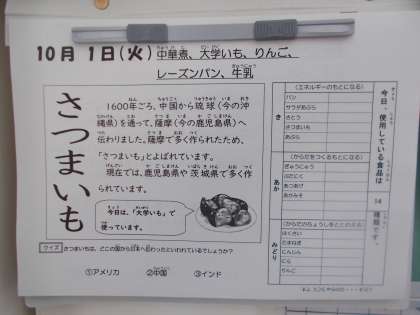 10月 1日(火) 中華煮、大学いも、りんご、
レーズンパン、牛乳
さつまいも
1600年ごろ、中国から琉球(今の沖
縄県)を通って、薩摩(今の鹿児島県)へ
伝わりました。薩摩で多く作られたため、
「さつまいも」とよばれています。
現在では、鹿児島県や茨城県で多く作
られています。
今日は、「大学いも」で
使っています。
クイズ
さつまいもは、どこの国から日本へ伝わったといわれているでしょうか?
①アメリカ ②中国 ③インド
今日、使用している食品は 14 種類です。
(エネルギーのもとになる)
き
パン
サラダあぶら
さとう
さつまいも
あぶら
(からだをつくるもとになる)
あか
ぎゅうにゅう
ぶたにく
あつあげ
(からだのちょうしをととのえる)
みどり
はくさい
たまねぎ
にんじん
にら
りんご